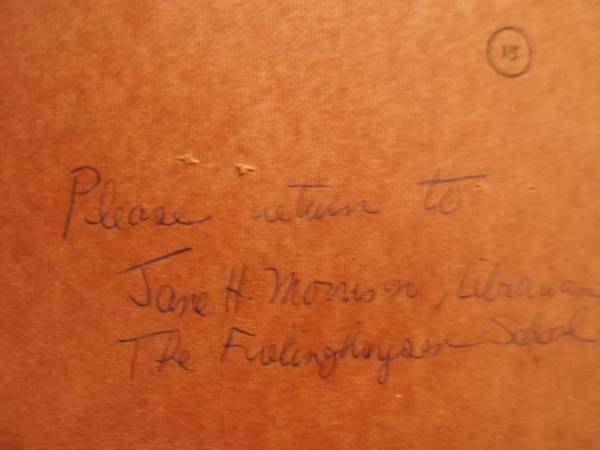 15
Please return to
Jane H Morrison, Librarian
The Frelinghuysen School